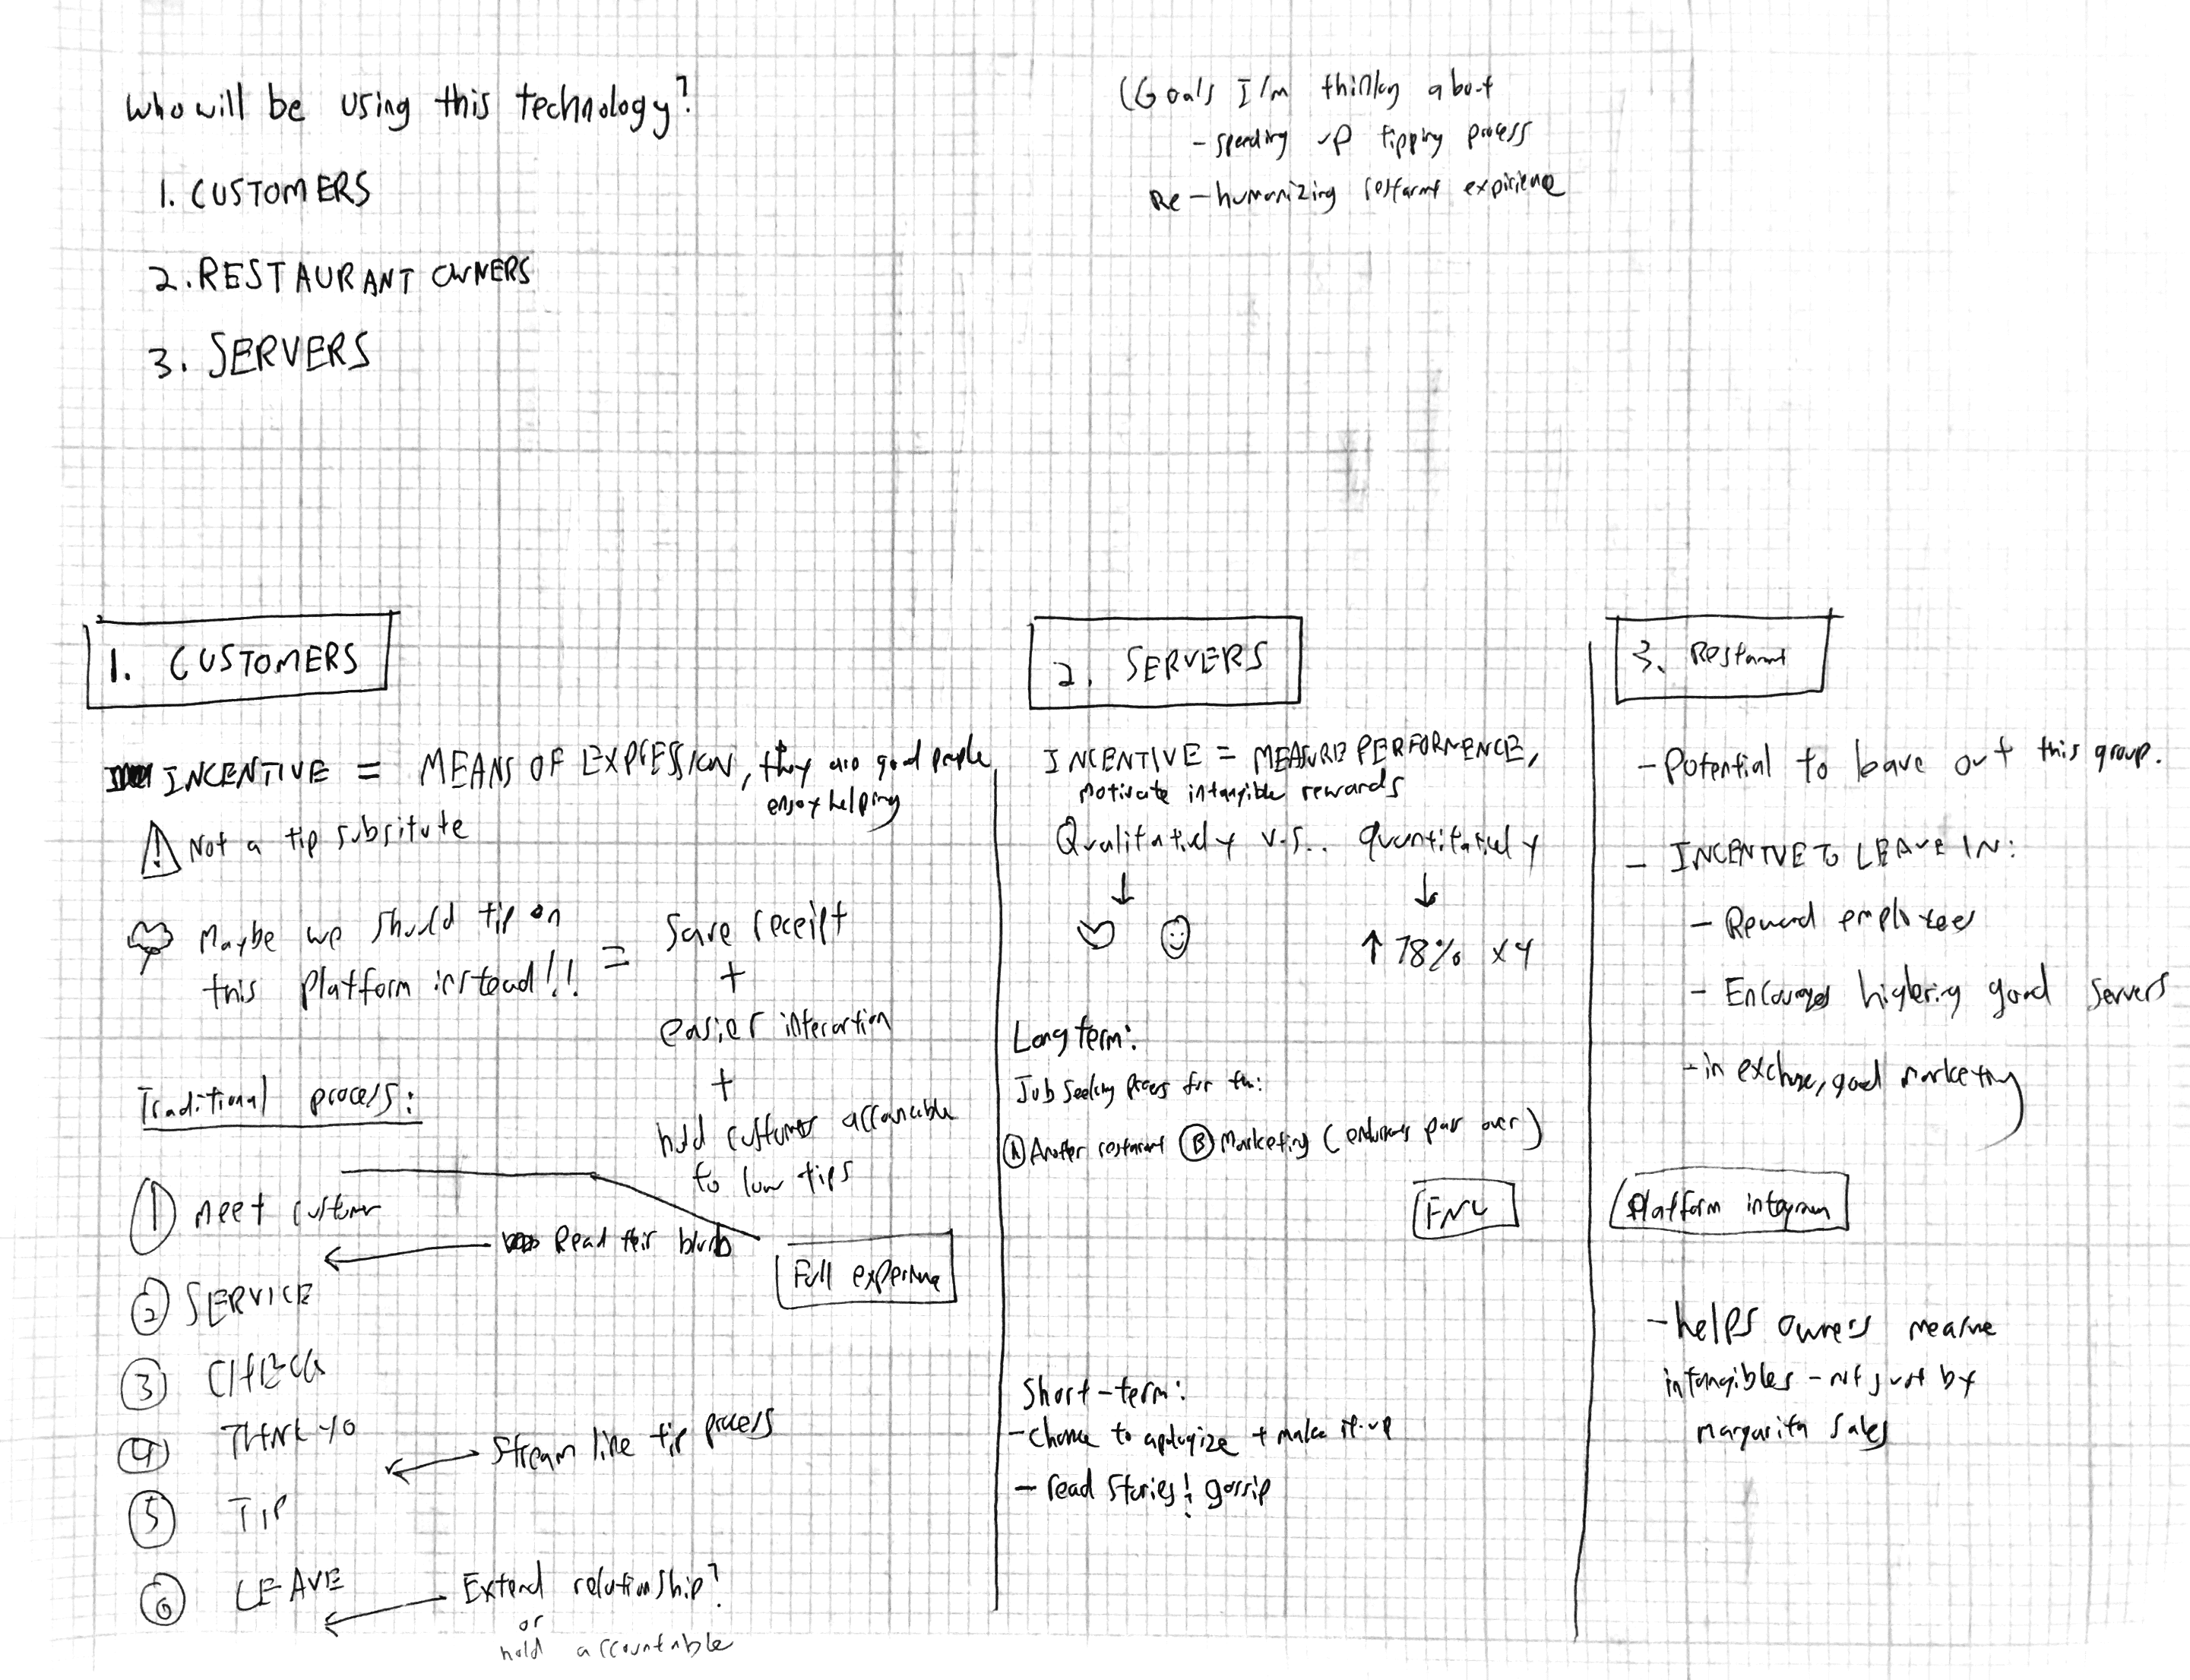 Who will be using this technology?
1. CUSTOMERS
2. RESTAURANT OWNERS
3. SERVERS
(Goals I'm thinking about
- speeding up tipping process
Re-humanizing restaurant expirience
1. CUSTOMERS
INCENTIVE = MEANS OF EXPRESSION, they are good people
enjoy helping
! Not a tip subsitute
Maybe we should tip on
this platform instead!!
=
Save receipt
+
easier interaction
+
hold customer accountable
to low tips
Traditional process:
1 Meet customer
Read their blurb
Full experience
2 SERVICE
3 CHECK
4 THANK YO
Stream line tip process
5 TIP
6 LEAVE
Extend relationship?
or
hold accountable
2. SERVERS
INCENTIVE = MEASURE PERFORMENCE,
motivate intangible rewards
Qualitatively v.s.. quantitatively
↑ 78% x4
Long term:
Job seeking process for
A Another restaurant B Marketing ( over)
Short-term:
- Chance to apologize + make it up
- read stories & gossip
3. Restaurant
- Potential to leave out this group.
- INCENTIVE TO LEAVE IN:
- Reward employees
- Encourages highering good servers
- in exchange, good marketing
Platform
- helps owners measure
intangibles - not just by
margarita sales